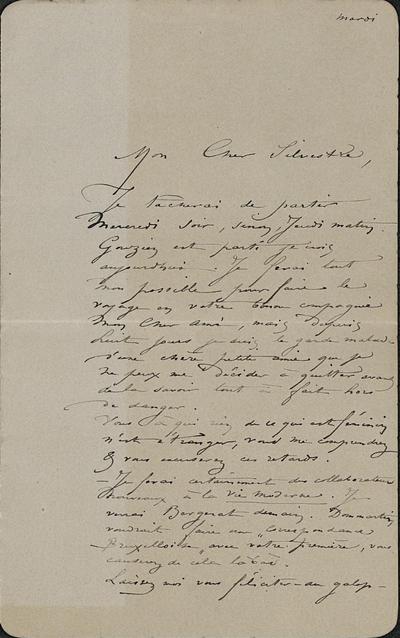 mardi
Mon Cher Silvestre,
Je tacherai de partir
Mercredi soir, sinon, Jeudi matin.
Gouzien est parti je crois
aujourdhui. Je ferai tout
mon possible pour faire le
voyage en votre bonne compagnie
Mon cher ami, mais depuis
huit jours je suis le garde malade
d'une chère petite amie que je
ne peux me décider à quitter avant
de la savoir tout à fait hors
de danger.
Vous à qui rien de ce qui est féminin
n'est étranger, vous me comprendrez
& vous excuserez ces retards.
— Je ferai certainement des collaborateurs
nouveaux à la vie moderne. Je
verrai Bergerat demain. Dommartin
voudrait faire une "Correspondance
Bruxelloise" avec votre première, vous
causerez de cela là bas.
Laissez moi vous féliciter au galop —